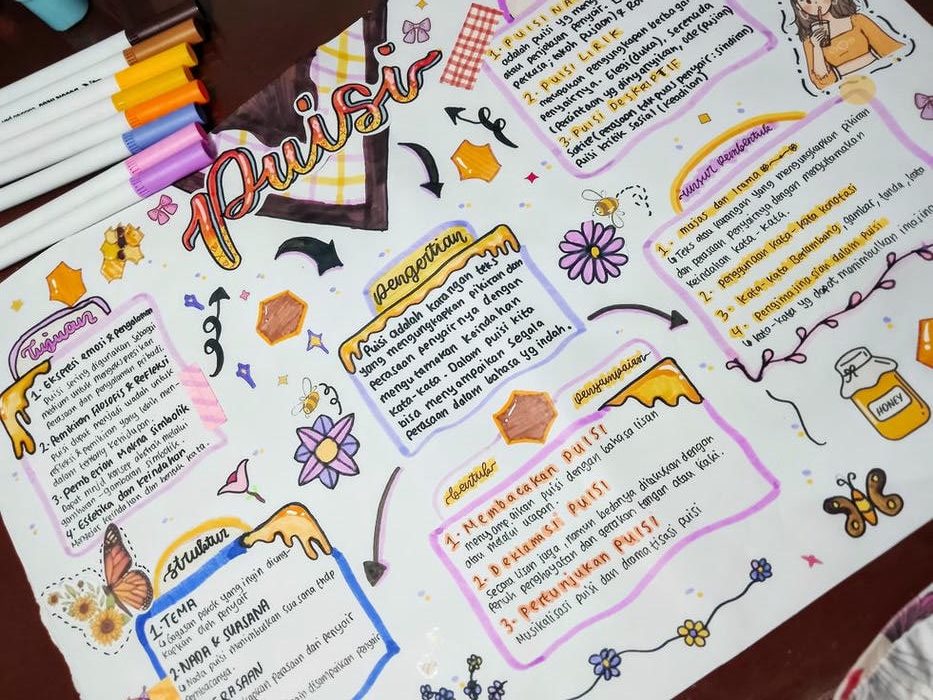 Puisi
1. PUISI NA
adalah puisi yg meng
atau penjelasan penyair.
perkasa: tokoh pujaan) & ro
2. PUISI LIRIK
merupakan pengungkapan berbagai
penyairnya. Elegi (duka), serenada
(percintaan yg dinyanyikan, ode (pujian)
3. PUISI DESKRIPTIF
Satire (perasaan tdk puas) penyair: sindiran)
Puisi kritik Sosial (keadilan)
unsur Pembentuk
1. majas dan Irama
Teks atau karangan yang mengungkapkan pikiran
dan perasaan penyairnya dengan mengutamakan
keindahan kata - kata.
2. Penggunaan kata-kata konotasi
3. Kata-kata Berlambang, gambar, tanda, kata
4. Pengimajinasian dalam puisi
kata-kata yg dapat menimbulkan imajina
Pengertian
Puisi adalah karangan teks
yang mengungkapkan pikiran dan
perasaan penyairnya dengan
mengutamakan keindahan
kata-kata. Dalam puisi kita
bisa menyampaikan Segala
Perasaan dalam bahasa yg indah.
Tujuan
1. EKSPRESI emosi & pengalaman
Puisi sering digunakan sebagai
medium untuk mengekspresikan
perasaan dan pengalaman pribadi.
2. Pemikiran Filosofis & Refleksi
Puisi dapat menjadi wadah untuk
refleksi & pemikiran yang lebih men-
dalam tentang kehidupan.
3. Pemberian Makna Simbolik
Dapat mnjd konsep abstrak melalui
gambaran - gambaran simbolik.
4. Estetika dan Keindahan
keindahan dlm bentuk kata.
bentuk
penyampaian
1. Membacakan PUISI
menyampaikan puisi dengan bahasa lisan
atau melalui ucapan.
2. DEKLAMASI PUISI
Secara lisan juga, namun bedanya dilakukan dengan
penuh penghayatan dan gerakan tangan atau kaki.
3. Pertunjukan PUISI
Musikalisasi puisi dan dramatisasi puisi
HONEY
Struktur
1. TEMA
Gagasan pokok yang ingin diung-
kapkan oleh penyair
2. NADA & SUASANA
Nada puisi menimbulkan suasana thdp
pembacanya.
ERASAAN
kapkan perasaan dari penyair
ingin disampaikan penyair